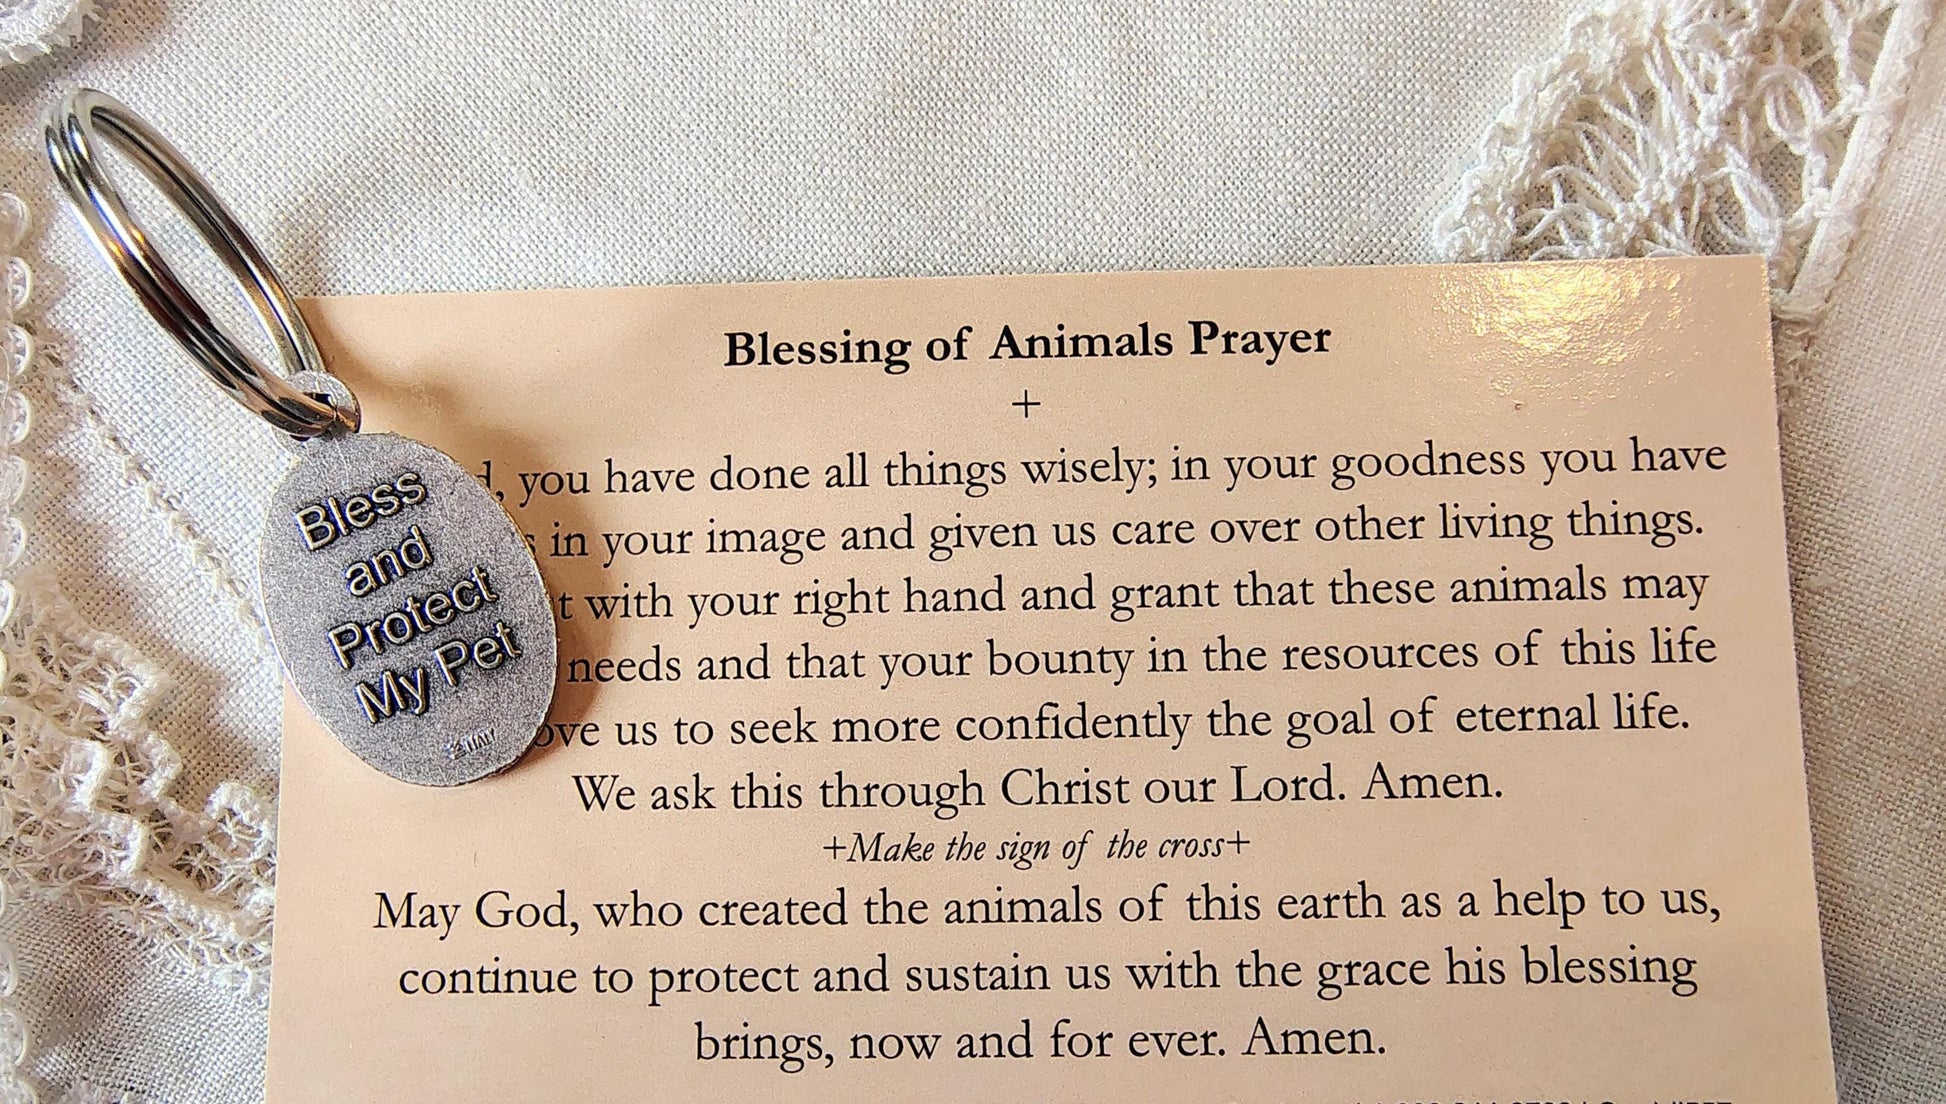 Bless
and
Protect
My Pet
ITALY
Blessing of Animals Prayer
+
you have done all things wisely; in your goodness you have
in your image and given us care over other living things.
with your right hand and grant that these animals may
needs and that your bounty in the resources of this life
us to seek more confidently the goal of eternal life.
We ask this through Christ our Lord. Amen.
+Make the sign of the cross+
May God, who created the animals of this earth as a help to us,
continue to protect and sustain us with the grace his blessing
brings, now and for ever. Amen.